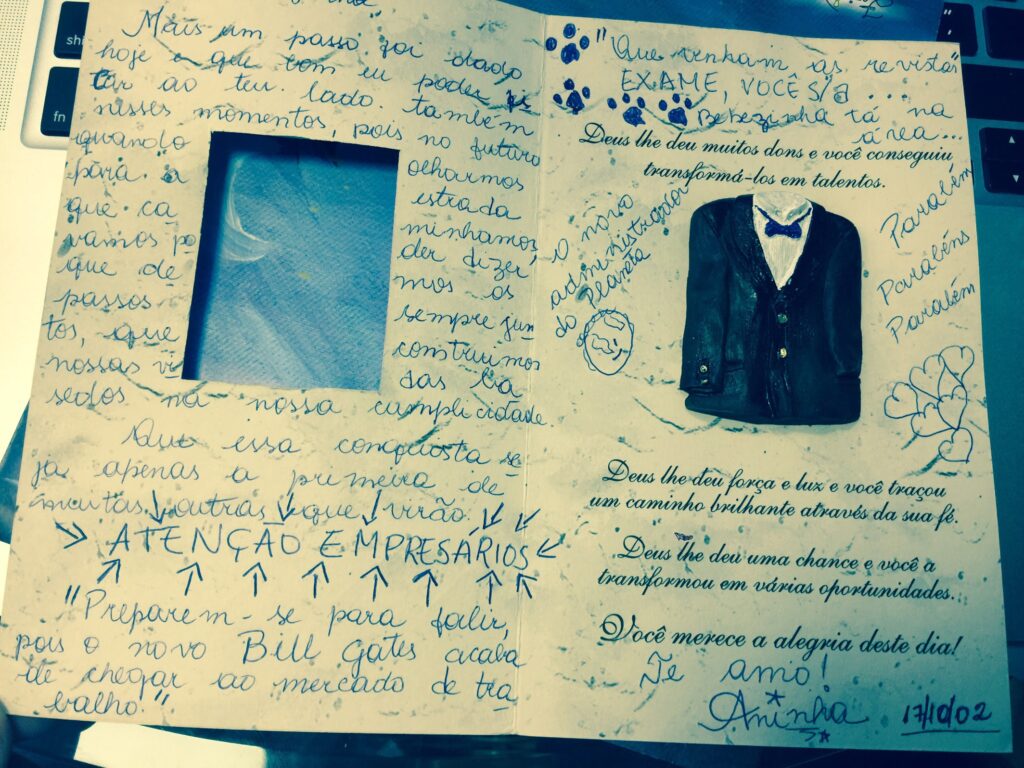 Mais um passo foi dado
hoje e que bom eu poder es
tar ao teu lado também
nesses momentos, pois no futuro
quando olharmos
para a estrada
que ca minhamos,
vamos po der dizer
que de mos os
passos sempre jun
tos, que construimos
nossas vi das ba
sedos na nossa cumplicidade.
Que essa conquista se
ja apenas a primeira de
muitas outras que virão.
ATENÇÃO EMPRESÁRIOS
"Preparem-se para falir,
pois o novo Bill Gates acaba
de chegar ao mercado de tra
balho".
"Que venham as revistas"
EXAME, VOCÊ S/A ...
Bebezinha tá na
área...
Deus lhe deu muitos dons e você conseguiu
transformá-los em talentos.
O novo
administrador
do Planeta
Parabém
Parabéns
Parabém
Deus lhe deu força e luz e você traçou
um caminho brilhante através da sua fé.
Deus lhe deu uma chance e você a
transformou em várias oportunidades.
Você merece a alegria deste dia!
Te amo!
Aninha
17/10/02
fn